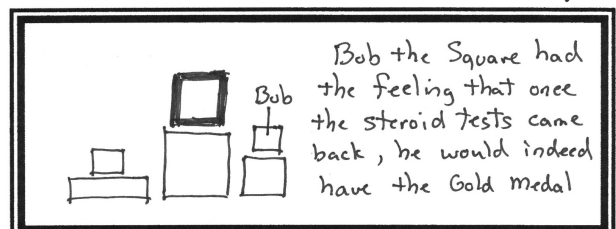 Bob the Square had
the feeling that once
the steroid tests came
back, he would indeed
have the Gold Medal
Bob